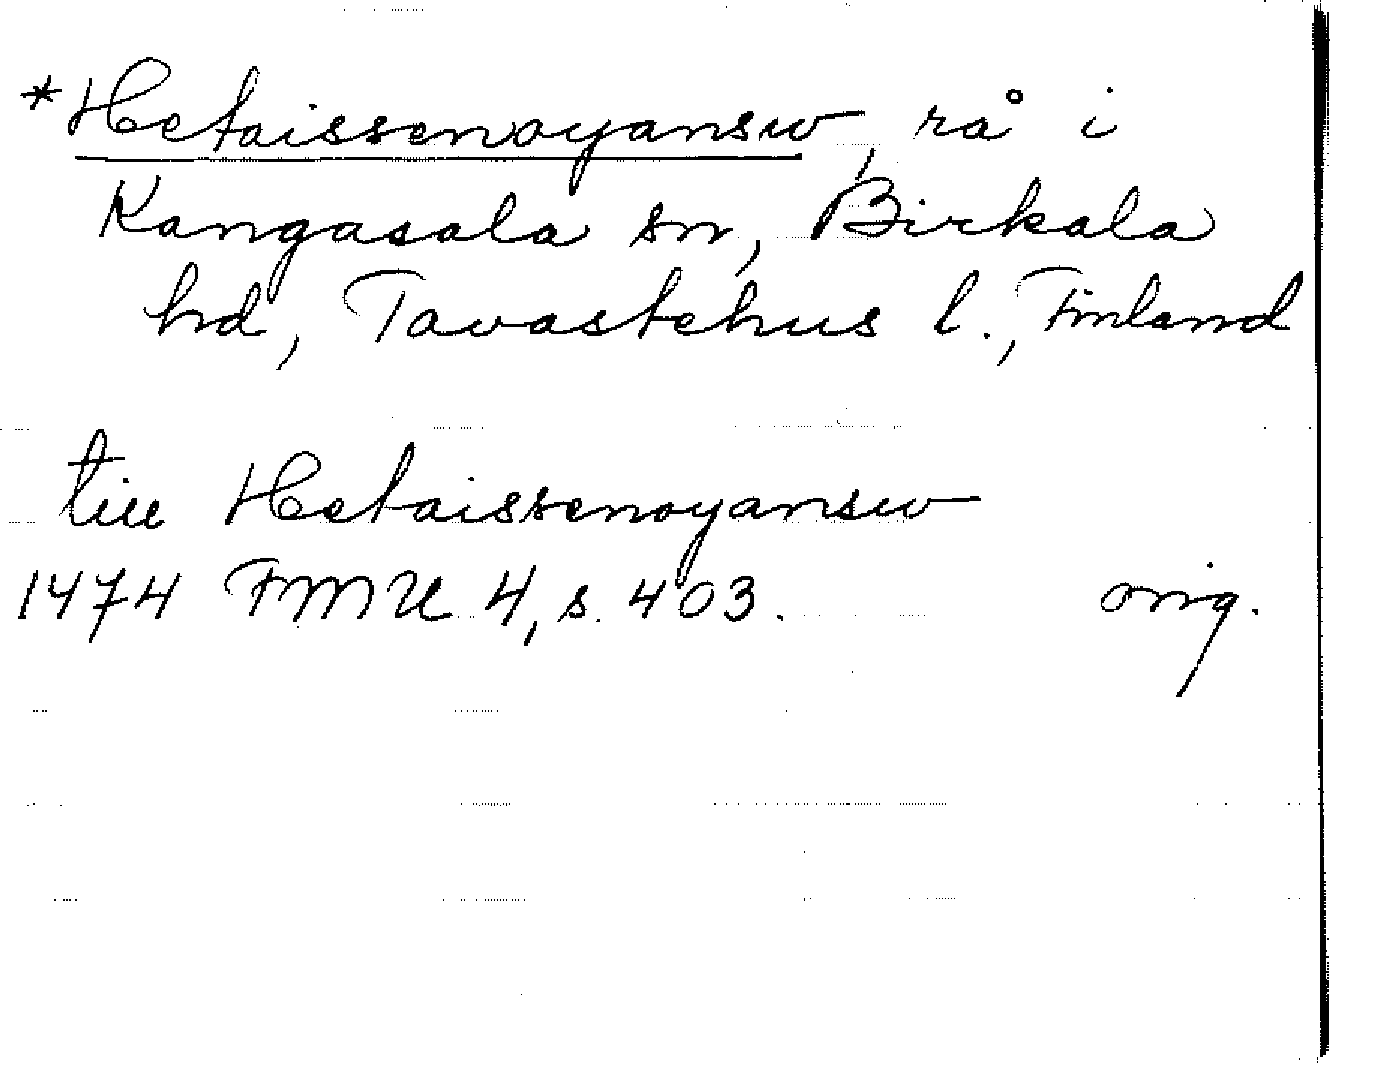 *Hetaissenoyansw, rå i
Kangasala sn, Birkala
hd, Tavastehus l., Finland
till Hetaissenoyansw
1474 FMU 4, s. 403. orig.